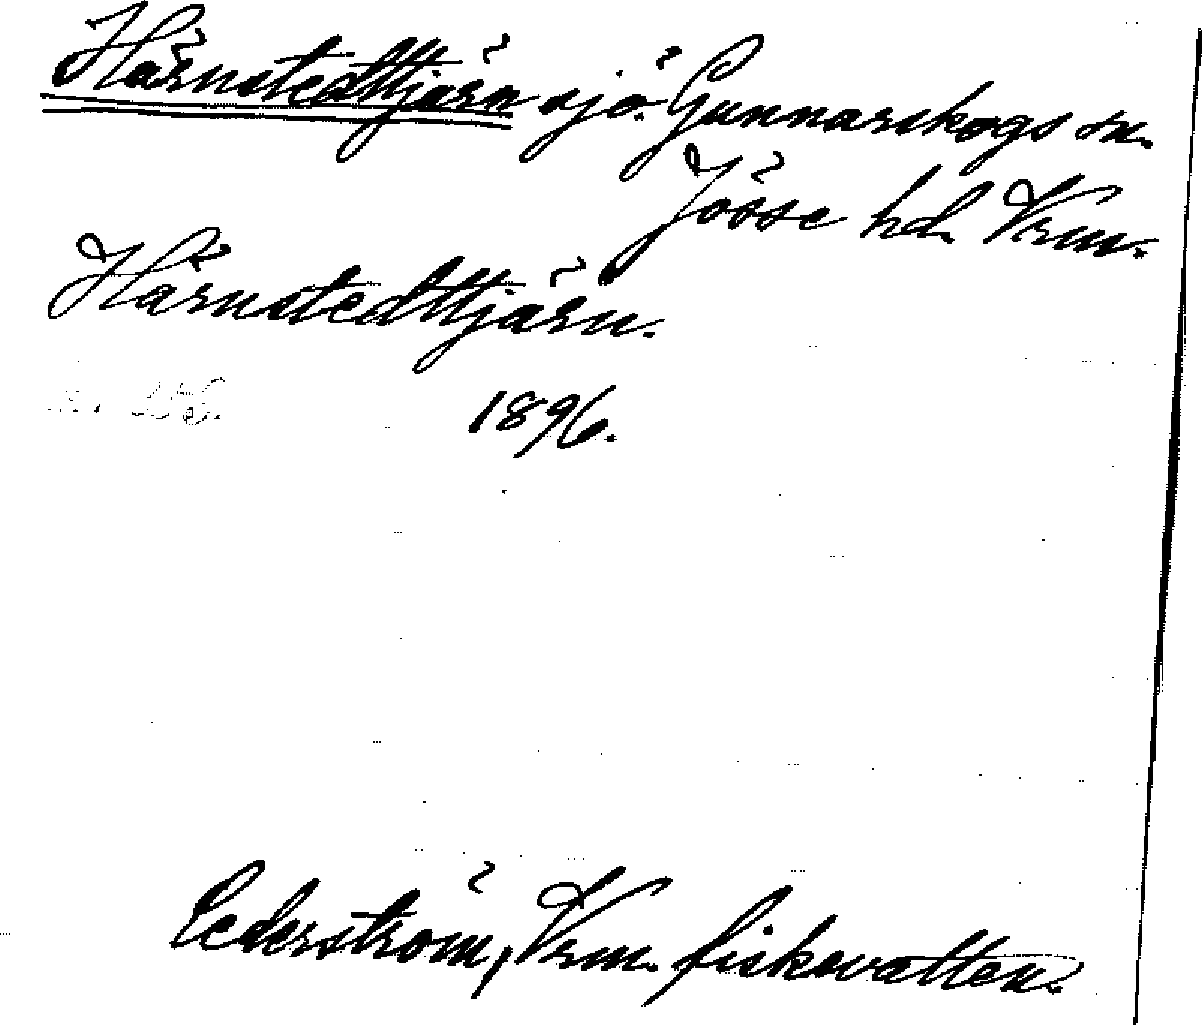 Härnstedttjärn sjö. Gunnarskogs sn.
Jösse hd. Vrm.
Härnstedttjärn.
s. 256.
1896.
Cederström, Vrm. fiskevatten.